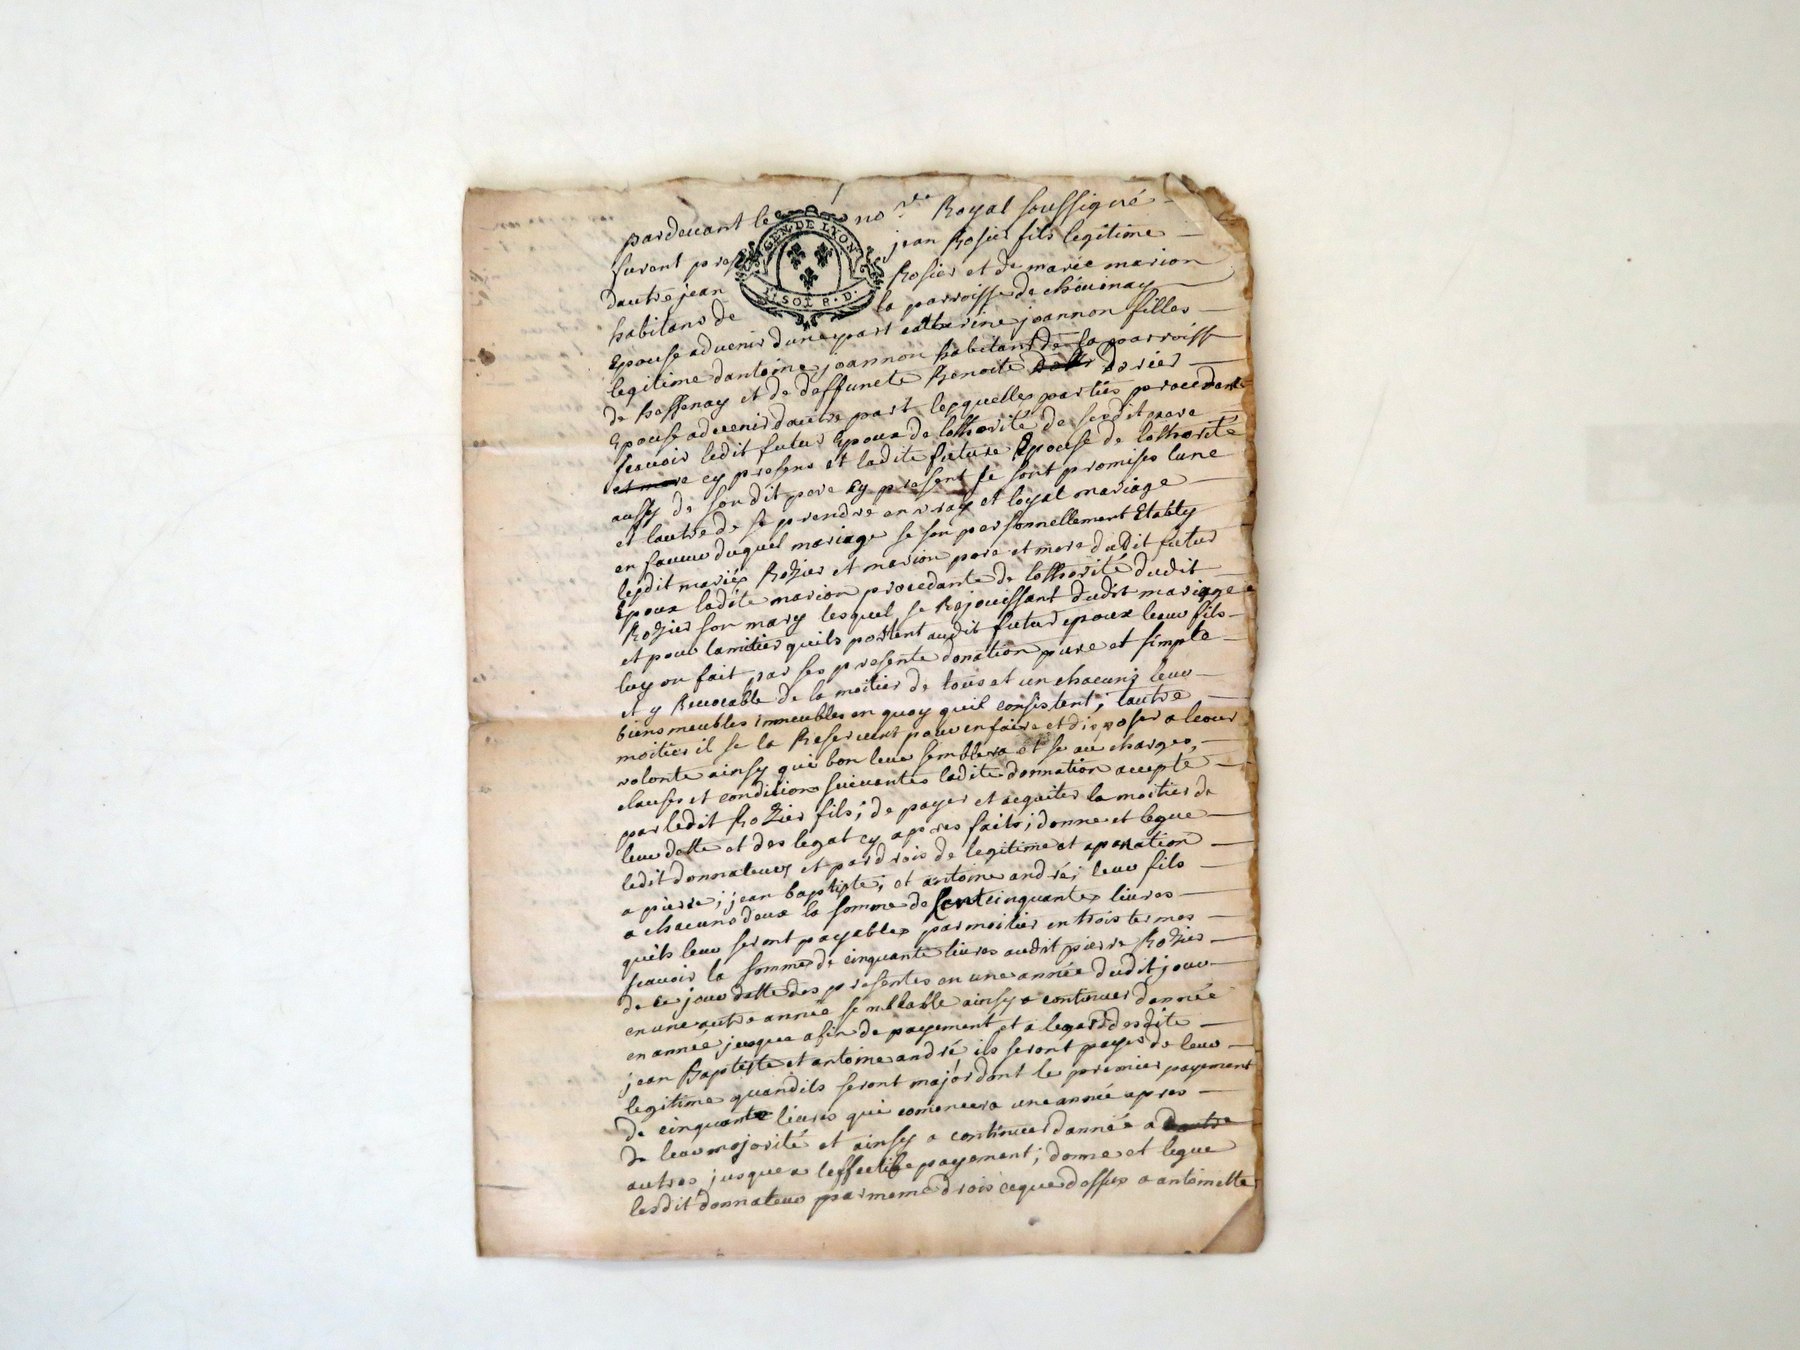 pardevant le no.re Royal soussigné
furent pres jean Rosier fils legitime
dautre jean Rosier et de marie marion
habitans de la parroisse de chévinay
GEN. DE LYON
SOL 8. D.
Epouse advenir dune part catherine joannon filles
legitime dantoine joannon habitant de la parroisse
de Bessenay et de deffuncte Benoite Dorier
Epouse advenir dautre part lesquelles parties procedante
scavoir ledit futur Epoux de lotthorité de sesdit pere
et mere cy presens et ladite future Epouse de lotthorité
aussy de son dit pere cy present se sont promises lune
et lautre de se prendre en vray et loyal mariage
en faveur duquel mariage se son personnellement Etably
lesdit mariés Rozier et marion pere et mere dudit futur
Epoux ladite marion procedante de lotthorité dudit
Rozier son mary lesquel se Rejouissant dudit mariage
et pour lamitier quils portent audit futur epoux leur fils
luy on fait par ses presente donation pure et simple
et y Revocable de la moitier de tous et un chacuns leur
biens meubles immeubles en quoy quil consistent, lautre
moitier il se la Reservent pour en faire et disposer a leur
volonte ainsy que bon leur semblera et se au charges,
clauses et condicions suivantes ladite donnation accepte
par ledit Rozier fils; de payer et acquiter la moitier de
leur dette et des legat cy apres faits; donne et legue
ledit donnateurs et par drois de legitime et aparation
a pierre; jean baptiste; et antoine andré; leur fils
a chacuns deux la somme de Cent cinquante livres
quils leur seront payables par moitier en trois termes
scavoir la somme de cinquante livres audit pierre Rozier
de ce jour datte des presentes en une année dudit jour
en une autre année semblable ainsy a continuer dannée
en année jusque a fin de payement et a legard desdite
jean Baptiste et antoine andré, ils seront payés de leur
legitime quandils seront major dont le premier payement
de cinquante livres qui comencera une année apres
de leur majorité et ainsy a continuer dannée a dautre
autres jusque a leffectife payement; donne et legue
lesdit donnateur par meme drois ceque dessus a antoinette